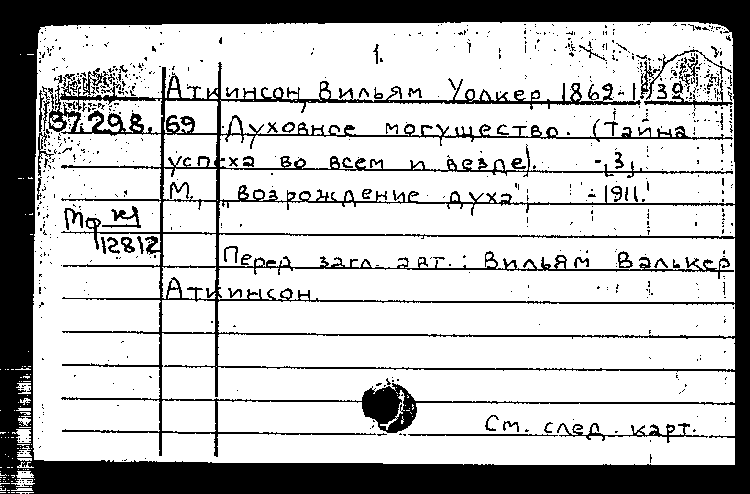 1.
Аткинсон, Вильям Уолкер, 1862-1932
37.29.8. 69 Духовное могущество. (Тайна
успеха во всем и везде). -[3],
М., "возрождение духа", -1911.
Мф К1
12812
Перед загл. авт.: Вильям Валькер
Аткинсон.
См. след. карт.